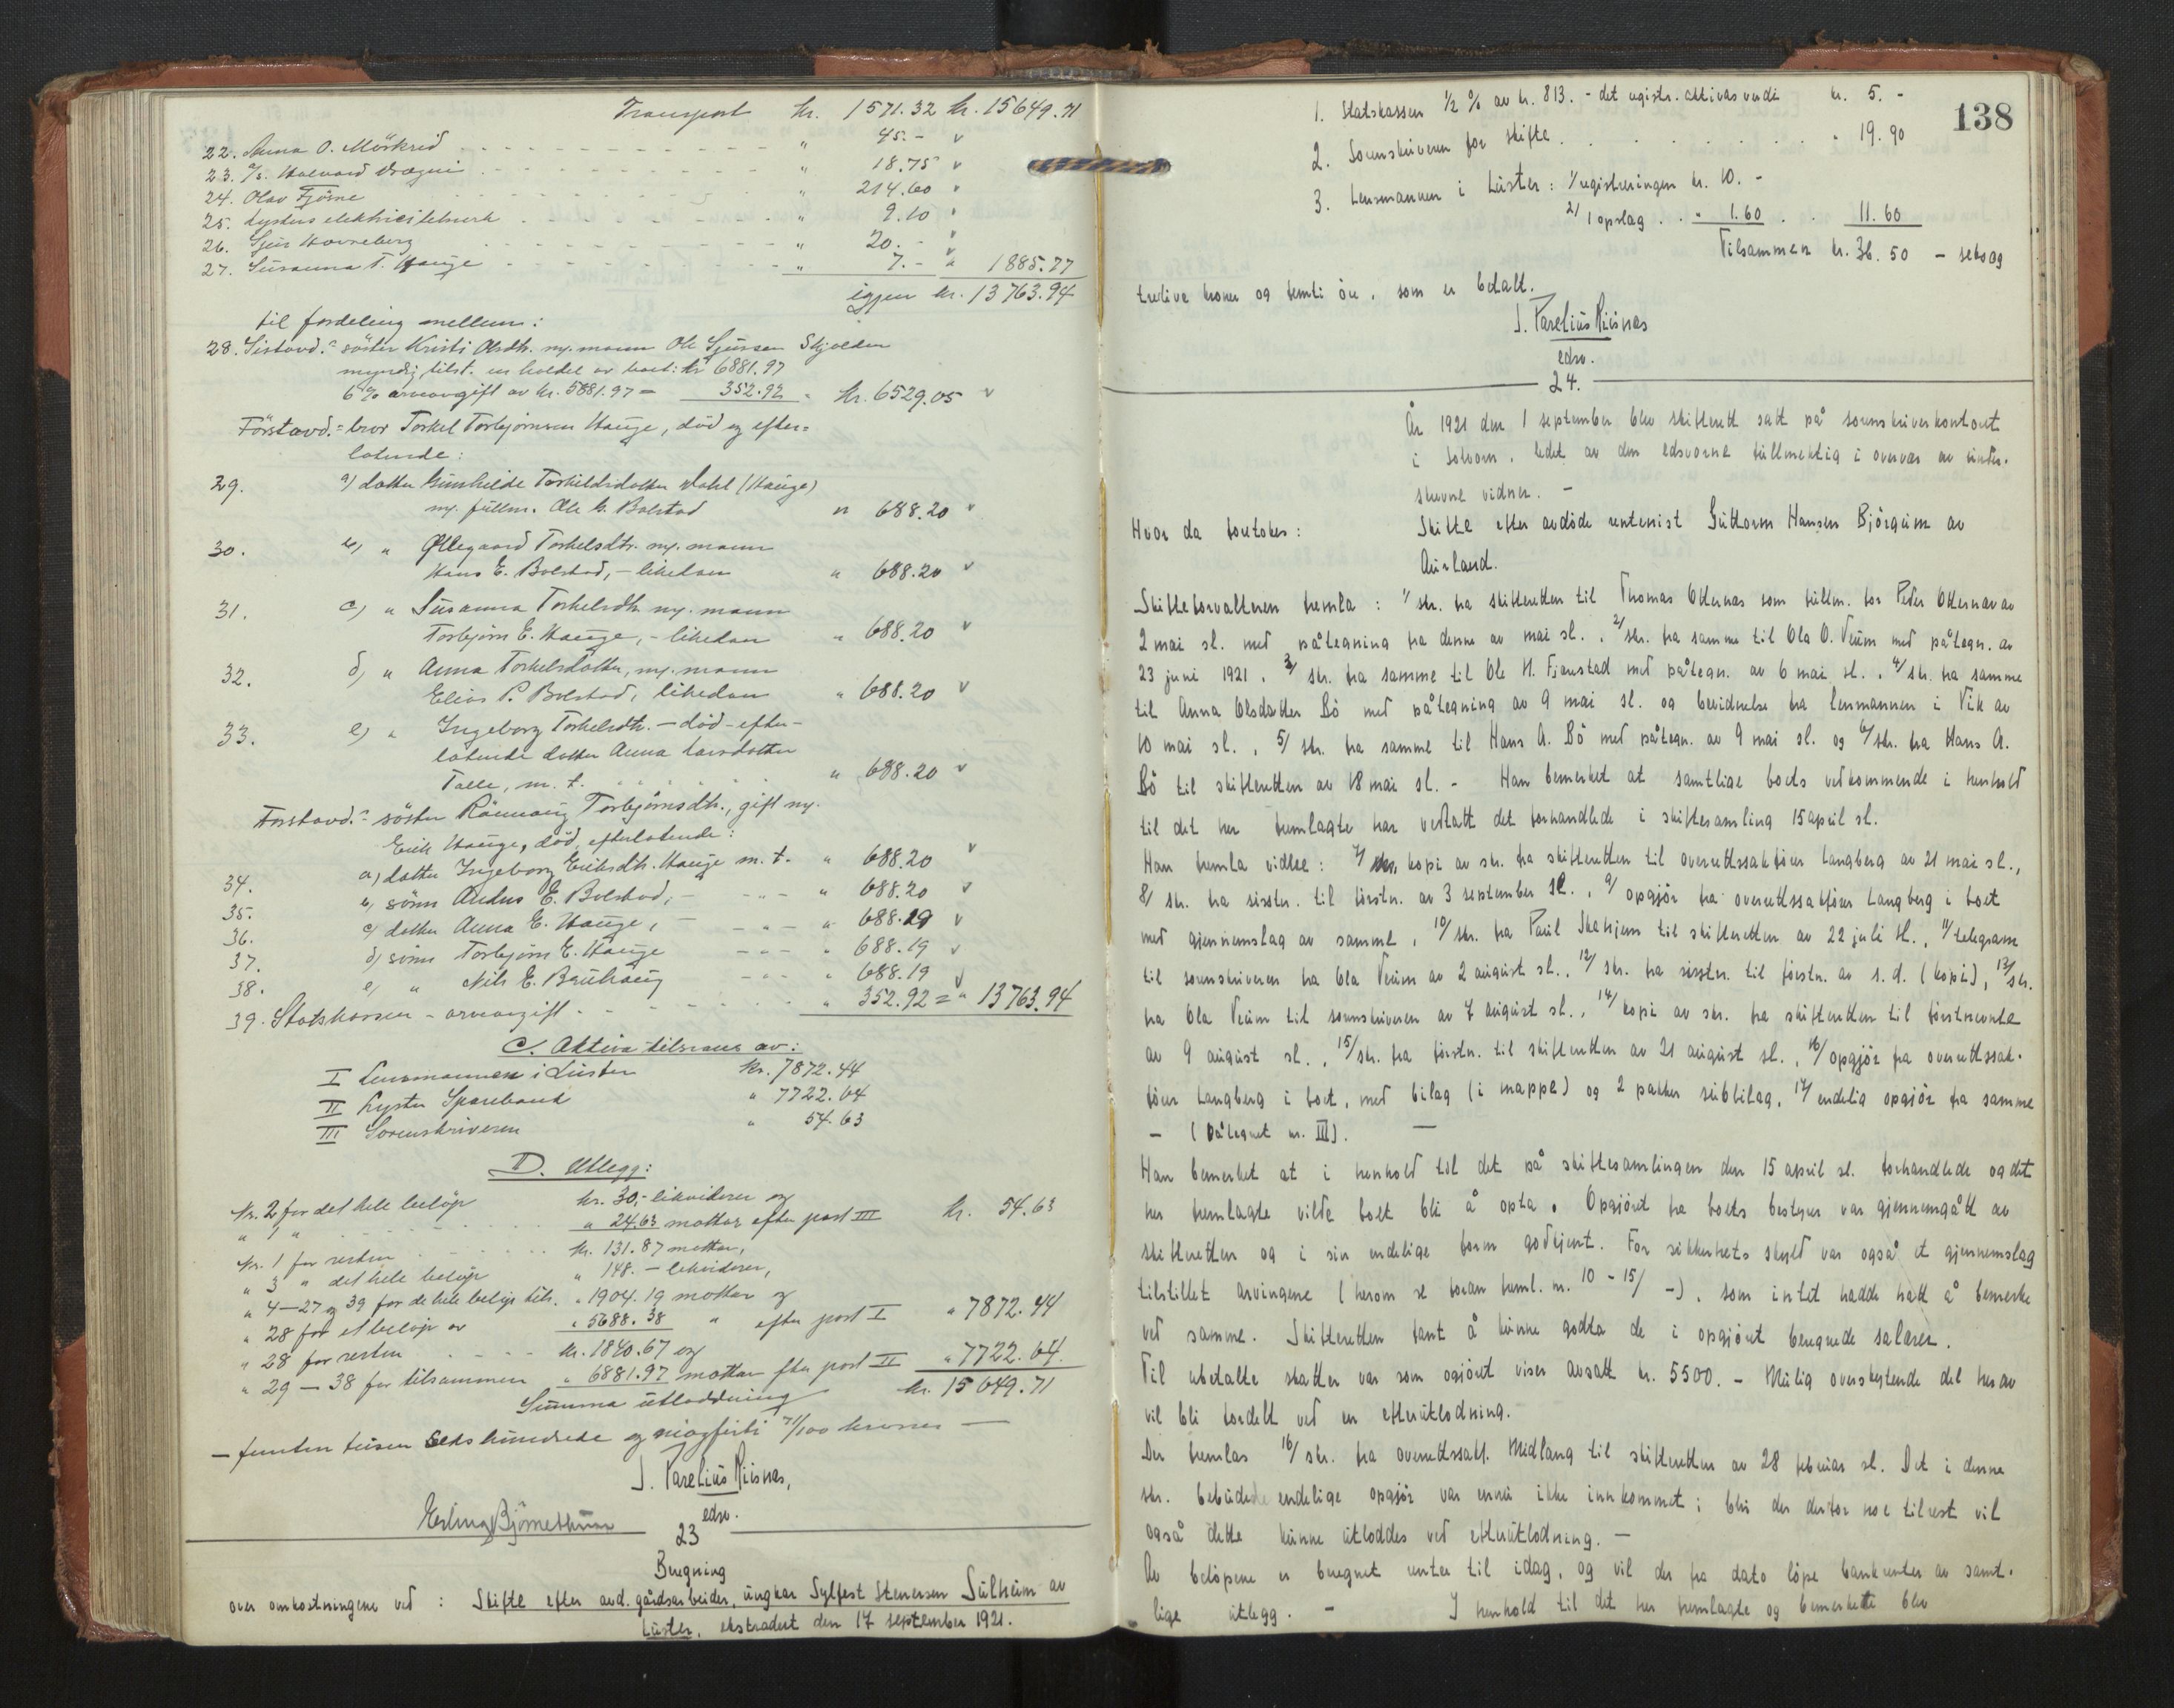 Transport kr. 1571.32 kr. 15649.71
22. Anna O. Mörkrid " 45.- v
23. A/s. Halvard Drægni " 18.75 v
24. Olav Fjörne " 214.60 v
25. Lysters elektricitetsverk " 9.10 v
26. Sjur Hovneberg " 20.- v
27. Susanna T. Hauge " 7.- v " 1885.77
igjen kr. 13763.94
til fordeling mellem:
28. Sistavd.s söster Kristi Olsdtr. m/. mann Ole Sjursen Skjolden
myndig, tilst. en halvdel av boet: kr 6881.97
6% arveavgift av kr. 5881.97 = 352.92 = kr. 6529.05 v
Förstavd.= bror Torkel Torbjörnsen Hauge, död og efter=
latende:
29. a) datter Gunhilde Torkildsdatter Dahl (Hauge)
m/. fullm. Ole G. Bolstad " 688.20 v
30. b) " Øllegaard Torkelsdtr. m/. mann
Hans E. Bolstad, - likedan " 688.20 v
31. c) " Susanna Torkelsdtr m/. mann
Torbjörn E. Hauge, - likedan " 688.20 v
32. d) " Anna Torkelsdatter, m/. mann
Elias P. Bolstad, likedan " 688.20 v
33. e) " Ingeborg Torkelsdtr. - död - efter-
latende datter Anna Larsdatter
Talle, m. t. " 688.20 v
Förstavd.s söster Rönnaug Torbjörnsdtr., gift m/.
Erik Hauge, död, efterlatende:
34. a) datter Ingeborg Eriksdtr. Hauge m. t. " 688.20 v
35. b) sönn Anders E. Bolstad, - -"- " 688.20 v
36. c) datter Anna E. Hauge, - -"- " 688.19 v
37. d) sönn Torbjörn E. Hauge -"- " 688.19 v
38. e) " Nils E. Bruhaug -"- " 688.19 v
39. Statskassen - arveavgift " 352.92 = " 13763.94
C. Aktiva tilsvares av:
I Lensmannen i Luster kr. 7872.44
II Lyster Sparebank " 7722.64
III Sorenskriveren " 54.63
D. Utlegg:
Nr. 2 for det hele belöp kr. 30,- likviderer og
" 1 " " 24.63 mottar efter post III kr. 54.63
Nr. 1 for resten kr. 131.87 mottar,
" 3 " det hele belöp " 148. - likviderer,
" 4-27 og 39 for de hele belöp tils. " 1904.19 mottar og
" 28 for et belöp av " 5688.38 " efter post I " 7872.44
" 28 for resten kr. 1840.67 og
" 29 - 38 for tilsammen " 6881.97 mottar efter post II " 7722.64
Summa utloddning kr. 15649.71
- femten tusen sekshundrede og niogførti 71/100 kroner -
J. Parelius Riisnæs,
edsv.
Erling Björnethun
23
Beregning
over omkostningene ved : Skifte efter avd. gårdsarbeider, ungkar Sylfest Stenersen Sulheim av
Luster, ekstradert den 17 september 1921.
138
1. Statskassen 1/2 % av kr. 813. - det registr. aktivas verdi kr. 5. -
2. Sorenskriveren for skifte . . . " 19.90
3. Lensmannen i Luster : 1/ registreringen kr. 10. -
2/ 1 opslag . . " 1.60 . . 11.60
Tilsammen kr. 36. 50 - seksog
tredive kroner og femti öre, som er betalt.
J. Parelius Riisnæs
edsv.
24.
År 1921 den 1 september blev skifterett satt på sorenskriverkontoret
i Solvorn, ledet av den edsvorne fullmektig i overvær av under-
skrevne vidner. -
Hvor da foretokes : Skifte efter avdöde rentenist Guttorm Hansen Björgum av
Aurland.
Skifteforvalteren fremla : 1/ skr. fra skifteretten til Thomas Otternæs som fullm. for Peder Otternæs av
2 mai sl. med påtegning fra denne av mai sl., 2/ skr. fra samme til Ola O. Veum med påtegn. av
23 juni 1921, 3/ skr. fra samme til Ole H. Fjærestad med påtegn. av 6 mai sl., 4/ skr. fra samme
til Anna Olsdatter Bö med påtegning av 9 mai sl. og bevidnelse fra lensmannen i Vik av
10 mai sl., 5/ skr. fra samme til Hans A. Bö med påtegn. av 9 mai sl. og 6/ skr. fra Hans A.
Bö til skifteretten av 18 mai sl. - Han bemerket at samtlige boets vedkommende i henhold
til det her fremlagte har vedtatt det forhandlede i skiftesamling 15 april sl.
Han fremla videre : 7/ kopi av skr. fra skifteretten til overrettssakförer Langberg av 21 mai sl.,
8/ skr. fra sisstn. til förstn. av 3 september sl., 9/ opgjör fra overrettssakförer Langberg i boet
med gjennemslag av samme, 10/ skr. fra Paul Skahjem til skifteretten av 22 juli sl., 11/ telegram
til sorenskriveren fra Ola Veum av 2 august sl., 12/ skr. fra sisstn. til förstn. av s. d. (kopi), 13/ skr.
fra Ola Veum til sorenskriveren av 7 august sl., 14/ kopi av skr. fra skifteretten til förstnevnte
av 9 august sl., 15/ skr. fra förstn. til skifteretten av 21 august sl., 16/ opgjör fra overrettssak-
förer Langberg i boet, med bilag (i mappe) og 2 pakker subbilag, 17/ endelig opgjör fra samme
- (påtegnet nr. III). -
Han bemerket at i henhold til det på skiftesamlingen den 15 april sl. forhandlede og det
her fremlagte vilde boet bli å opta. Opgjöret fra boets bestyrer var gjennemgått av
skifteretten og i sin endelige form godkjent. For sikkerhets skyld var også et gjennemslag
tilstillet arvingene (herom se foran freml. nr. 10 - 15/ -), som intet hadde hatt å bemerke
ved samme. Skifteretten fant å kunne godta de i opgjöret beregnede salærer.
Til ubetalte skatter var som ogjöret viser avsatt kr. 5500. - Mulig overskytende del herav
vil bli fordelt ved en efterutlodning.
Der fremlas 16/ skr. fra overrettssakf. Midlang til skifteretten av 28 februar sl. Det i denne
skr. bebudede endelige opgjör var ennu ikke innkommet; blir der derfor noe tilrest vil
også dette kunne utloddes ved efterutlodning. -
Av belöpene er beregnet renter til idag, og vil der fra dato löpe bankrenter av samt-
lige utlegg. - I henhold til det her fremlagte og bemerkete blev